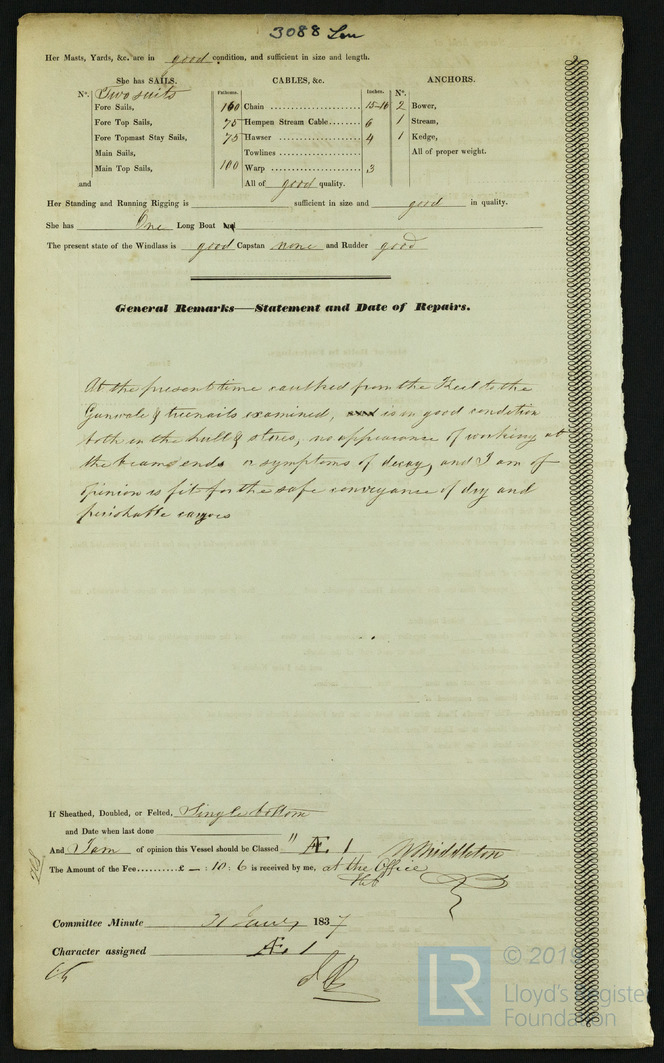 3088 Lon
Her Masts, Yards, &c. are in good condition, and sufficient in size and length.
She has SAILS. CABLES, &c. ANCHORS.
N°. Two suits Fathoms. Inches. N°.
Fore Sails, 160 Chain 15-16 2 Bower,
Fore Top Sails, 75 Hempen Stream Cable 6 1 Stream,
Fore Topmast Stay Sails, 75 Hawser 4 1 Kedge,
Main Sails, Towlines All of proper weight.
Main Top Sails, 100 Warp 3
and All of good quality.
Her Standing and Running Rigging is sufficient in size and good in quality.
She has One Long Boat and
The present state of the Windlass is good Capstan none and Rudder good
General Remarks—Statement and Date of Repairs.
At the present time caulked from the Keel to the
Gunwale & treenails examined, is in good condition
both in the hull & stores, no appearance of working at
the beams ends or symptoms of decay, and I am of
opinion is fit for the safe conveyance of dry and
perishable cargoes
If Sheathed, Doubled, or Felted, Single bottom
and Date when last done
And I am of opinion this Vessel should be Classed " Æ 1 Middleton
The Amount of the Fee..........£ — : 10 : 6 is received by me, at the Office
Committee Minute 31 Jany 1837
Character assigned Æ 1
LR © 2019
Lloyd's Register
Foundation